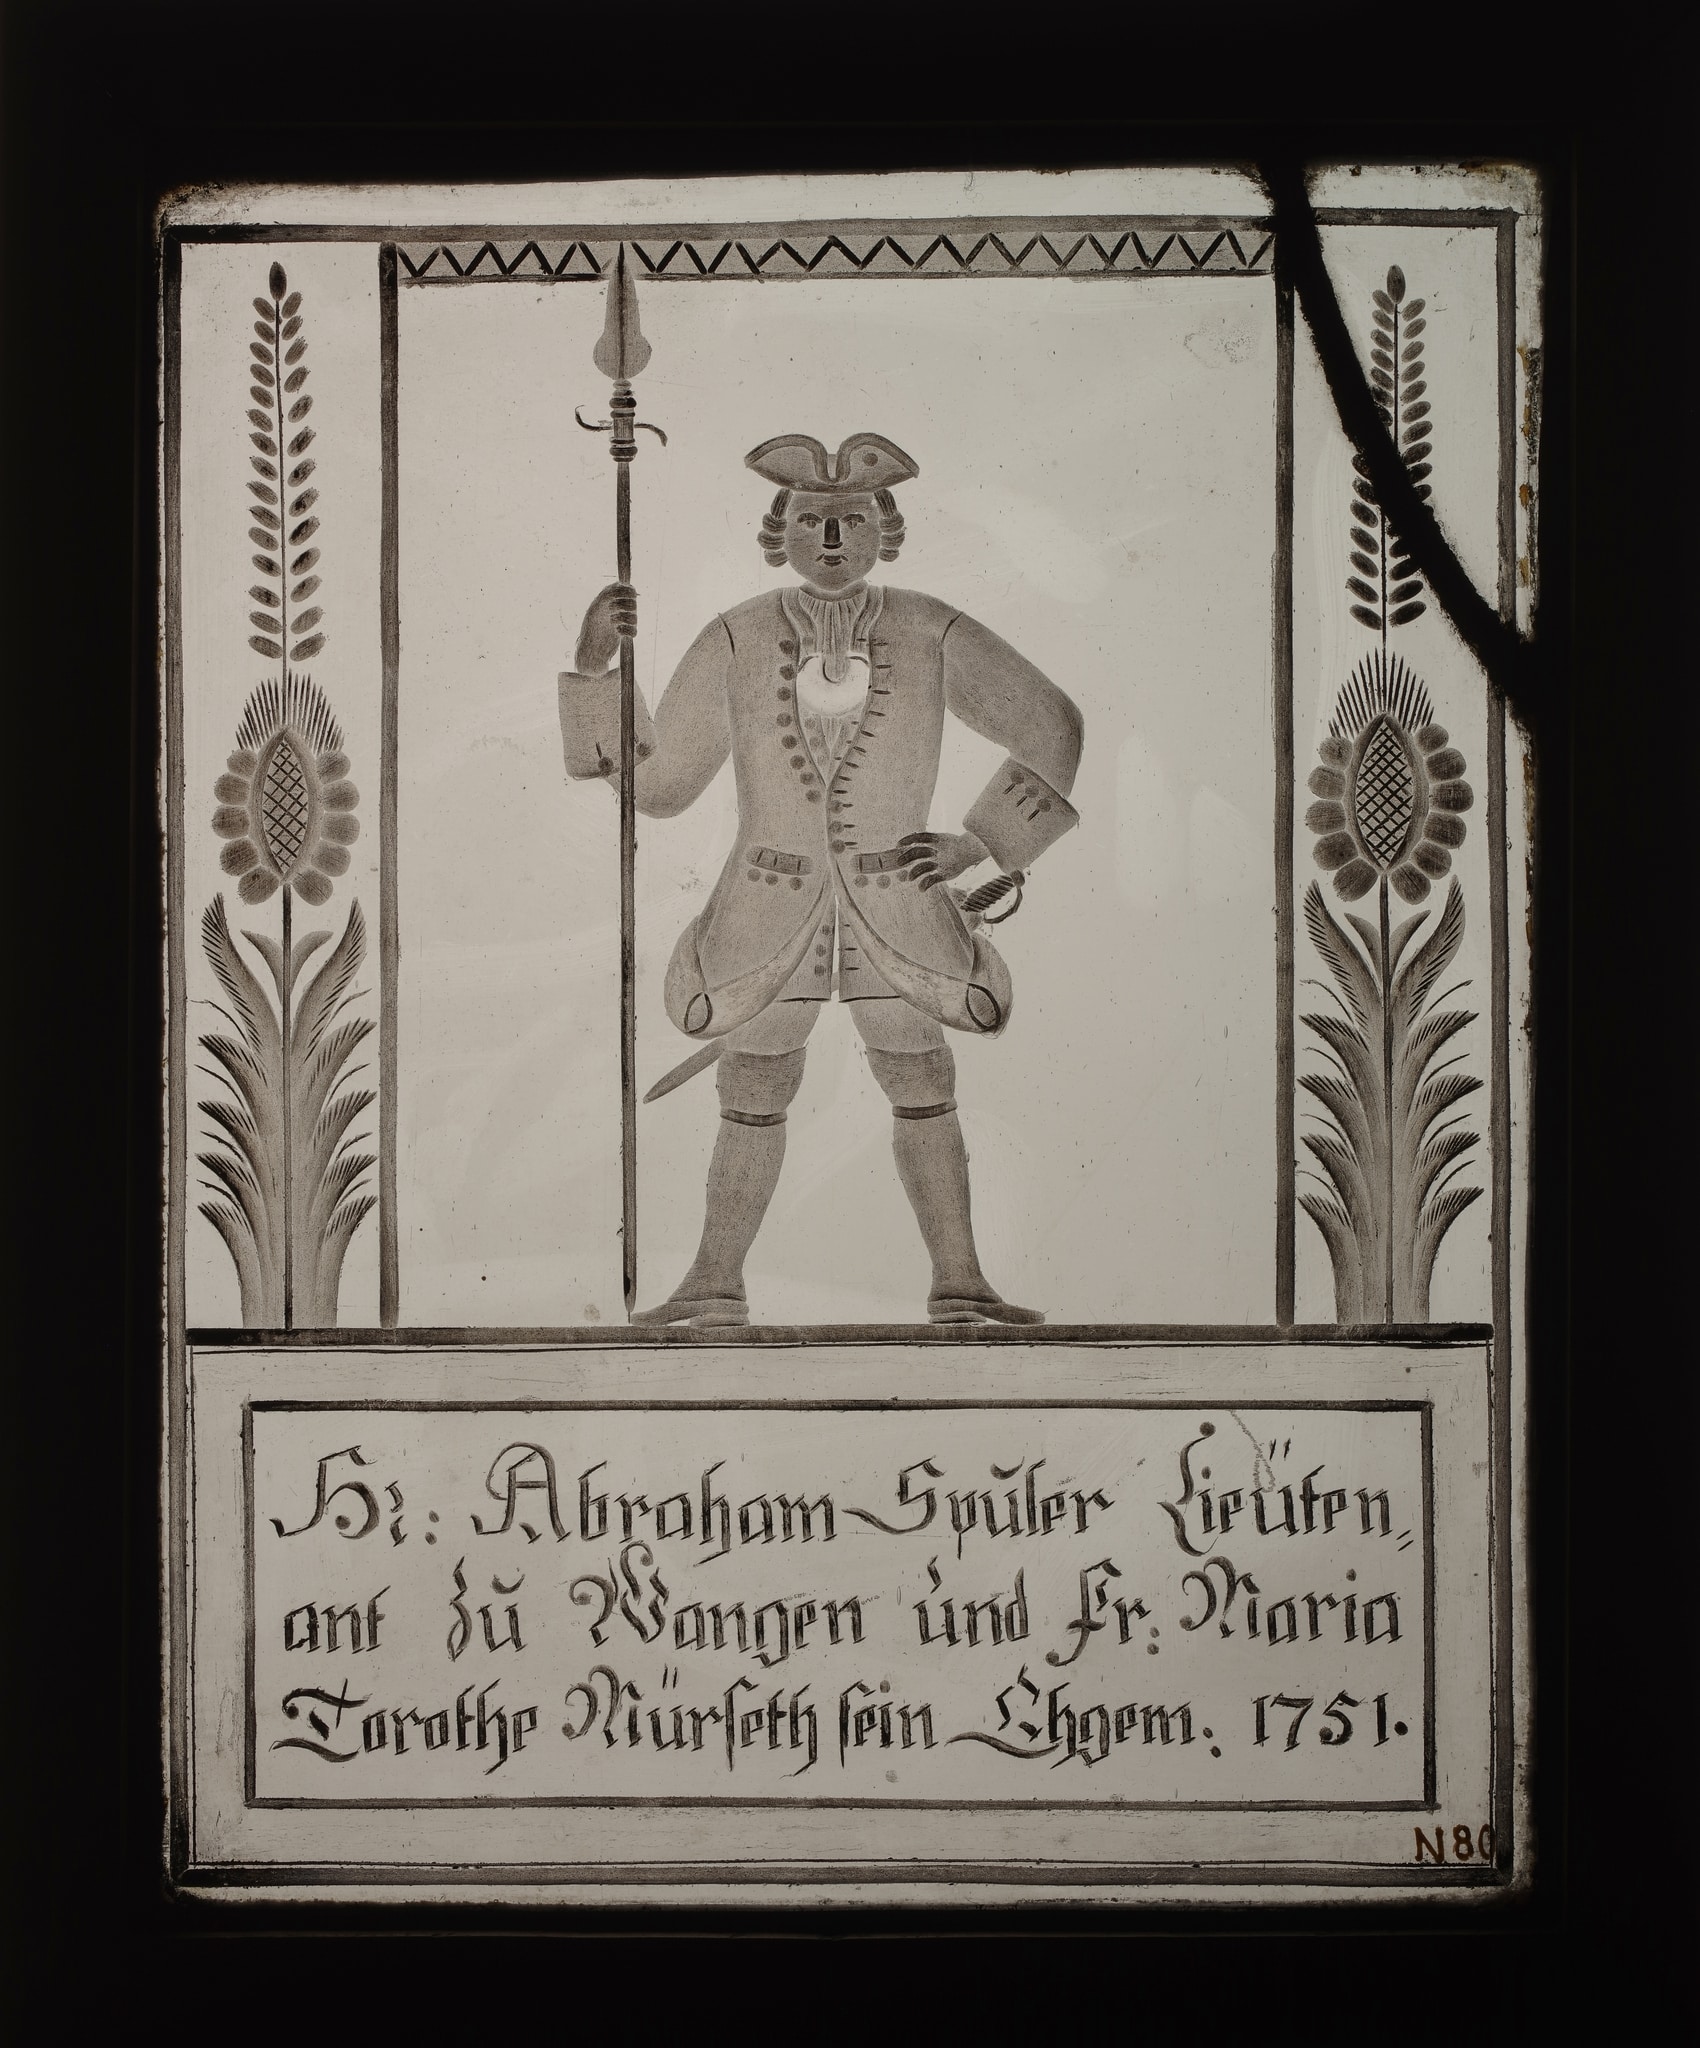 Hr: Abraham Spŭler Lieüten,
ant Zŭ Wangen ŭnd Fr: Maria
Torothe Mürseth sein Ehgem: 1751.
N80